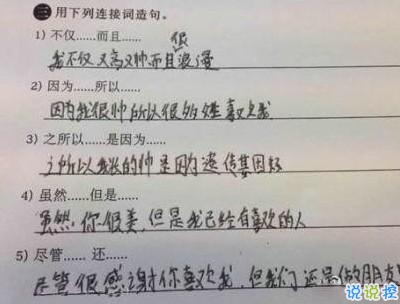 三 用下列连接词造句。
1) 不仅……而且……
我不仅又高又帅而且很浪漫
2) 因为……所以……
因为我很帅所以很多姓喜欢我
3) 之所以……是因为……
之所以我长的帅是因为遗传基因好
4) 虽然……但是……
虽然你很美,但是我已经有喜欢的人
5) 尽管…… 还……
尽管很感谢你喜欢我,但我们还是做朋友
说说控